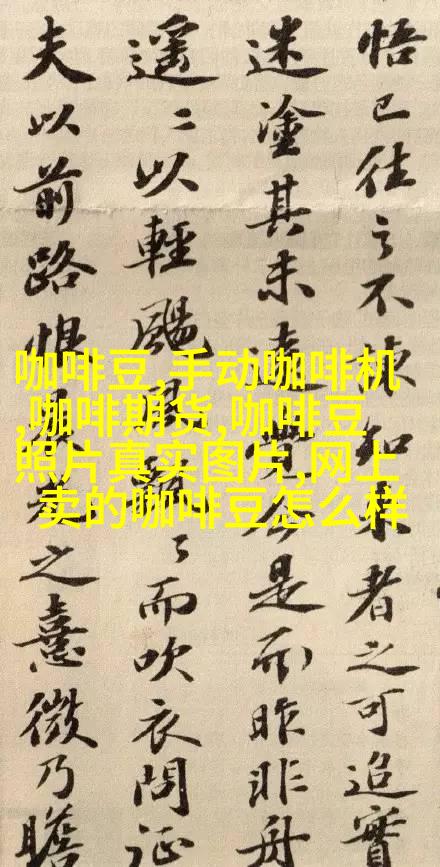 悟已往之不諫知來者之可追實
迷塗其未遠覺今是而昨非舟
遥〻以輕颺風飄〻而吹衣問征
夫以前路恨晨光之熹微乃瞻
咖啡豆,手动咖啡机
,咖啡期货,咖啡豆
照片真实图片,网上
卖的咖啡豆怎么样